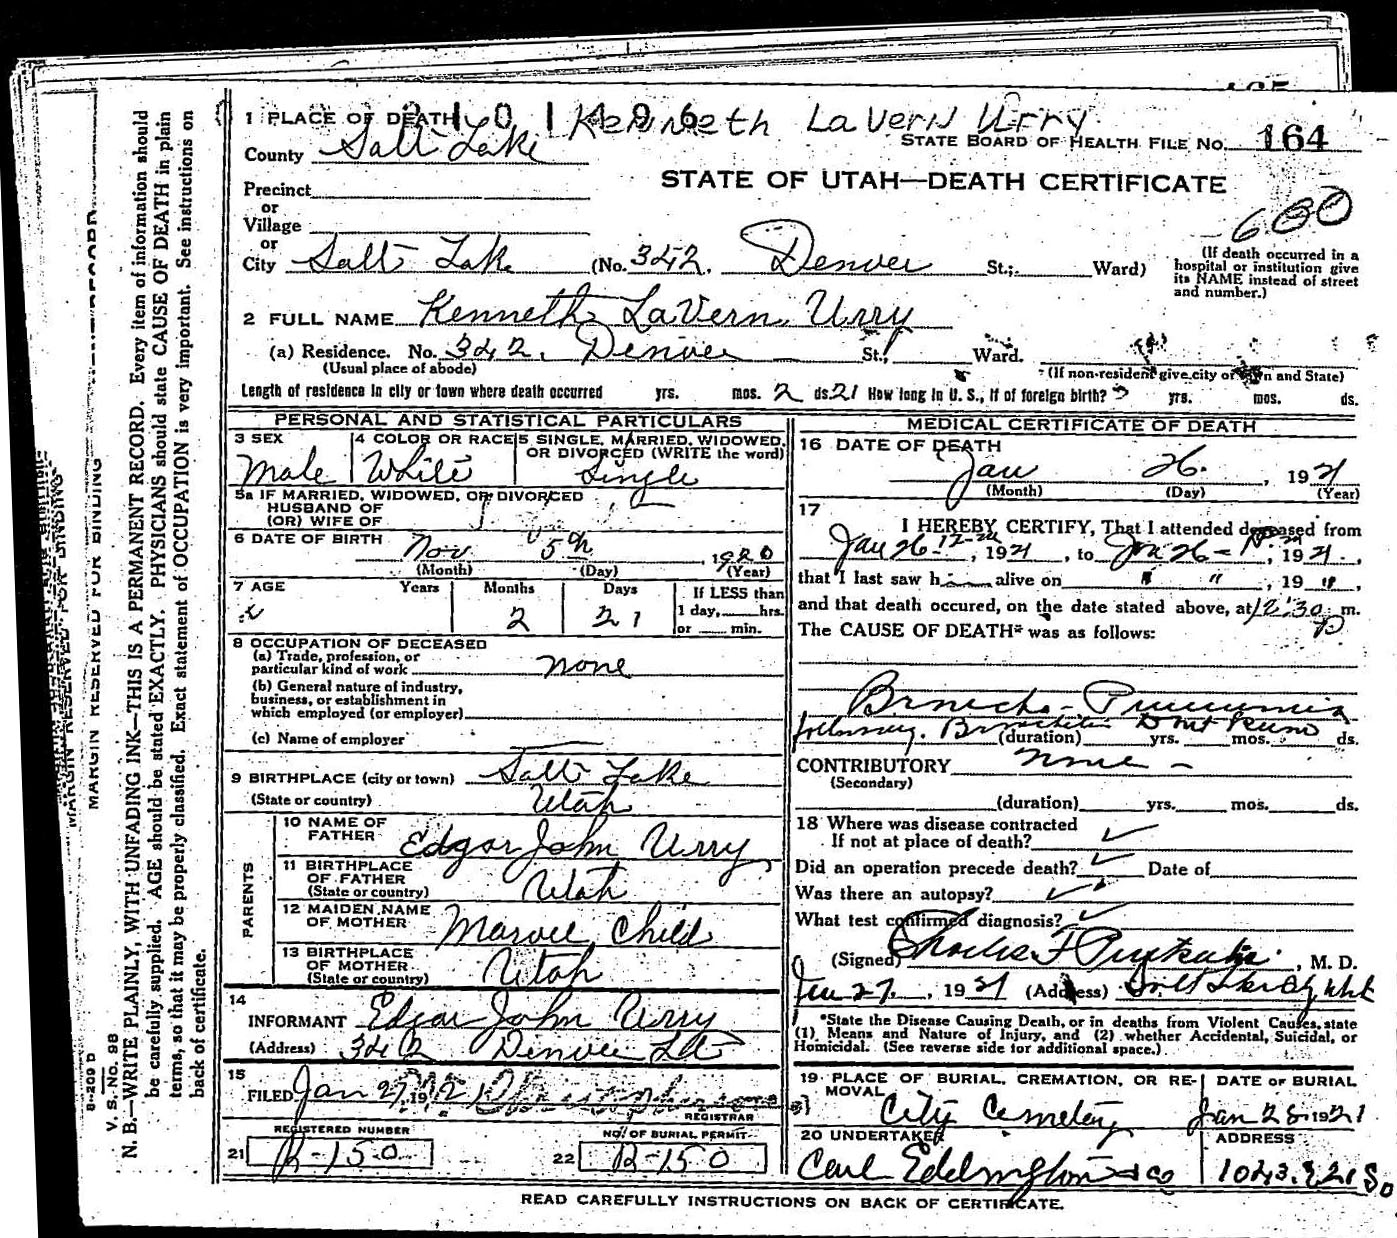 1 PLACE OF DEATH 2101496 Kenneth LaVern Urry
County Salt Lake
STATE BOARD OF HEALTH FILE NO. 164
Precinct
STATE OF UTAH—DEATH CERTIFICATE
or
Village
600
or
City Salt Lake (No. 342. Denver St.; Ward)
(If death occurred in a hospital or institution give its NAME instead of street and number.)
2 FULL NAME Kenneth LaVern Urry
(a) Residence. No. 342. Denver St., Ward.
(Usual place of abode) (If non-resident give city or town and State)
Length of residence in city or town where death occurred yrs. mos. 2 ds. 21 How long in U. S., if of foreign birth? yrs. mos. ds.
PERSONAL AND STATISTICAL PARTICULARS
3 SEX 4 COLOR OR RACE 5 SINGLE, MARRIED, WIDOWED, OR DIVORCED (WRITE the word)
Male White Single
5a IF MARRIED, WIDOWED, OR DIVORCED
HUSBAND OF
(OR) WIFE OF
6 DATE OF BIRTH Nov 5th, 1920
(Month) (Day) (Year)
7 AGE Years Months Days If LESS than
2 21 1 day, hrs.
or min.
8 OCCUPATION OF DECEASED
(a) Trade, profession, or
particular kind of work none
(b) General nature of industry,
business, or establishment in
which employed (or employer)
(c) Name of employer
9 BIRTHPLACE (city or town) Salt Lake
(State or country) Utah
PARENTS
10 NAME OF
FATHER Edgar John Urry
11 BIRTHPLACE
OF FATHER
(State or country) Utah
12 MAIDEN NAME
OF MOTHER Marvel Child
13 BIRTHPLACE
OF MOTHER
(State or country) Utah
14
INFORMANT Edgar John Urry
(Address) 342 Denver St
15
FILED Jan 27, 1921
REGISTRAR
REGISTERED NUMBER NO. OF BURIAL PERMIT
21 R-150 22 R-150
MEDICAL CERTIFICATE OF DEATH
16 DATE OF DEATH
Jan 26., 1921
(Month) (Day) (Year)
17
I HEREBY CERTIFY, That I attended deceased from
Jan 26, 1921, to Jan 26, 1921.,
that I last saw h alive on " ", 19 ",
and that death occured, on the date stated above, at 12:30 P m.
The CAUSE OF DEATH* was as follows:
Broncho-Pneumonia
following Bronchitis
(duration) yrs. mos. ds.
CONTRIBUTORY none -
(Secondary)
(duration) yrs. mos. ds.
18 Where was disease contracted
If not at place of death? ✓
Did an operation precede death? ✓ Date of
Was there an autopsy? ✓
What test confirmed diagnosis? ✓
(Signed) Charles F , M. D.
Jan 27., 1921 (Address) Salt Lake City Utah
*State the Disease Causing Death, or in deaths from Violent Causes, state
(1) Means and Nature of Injury, and (2) whether Accidental, Suicidal, or
Homicidal. (See reverse side for additional space.)
19 PLACE OF BURIAL, CREMATION, OR REMOVAL DATE OF BURIAL
City Cemetery Jan 28 1921
20 UNDERTAKER ADDRESS
Carl Eddington & Co 1043. E 21 So
READ CAREFULLY INSTRUCTIONS ON BACK OF CERTIFICATE.
MARGIN RESERVED FOR BINDING
V. S. NO. 98
8-209 D
N. B.—WRITE PLAINLY, WITH UNFADING INK—THIS IS A PERMANENT RECORD. Every item of information should
be carefully supplied. AGE should be stated EXACTLY. PHYSICIANS should state CAUSE OF DEATH in plain
terms, so that it may be properly classified. Exact statement of OCCUPATION is very important. See instructions on
back of certificate.